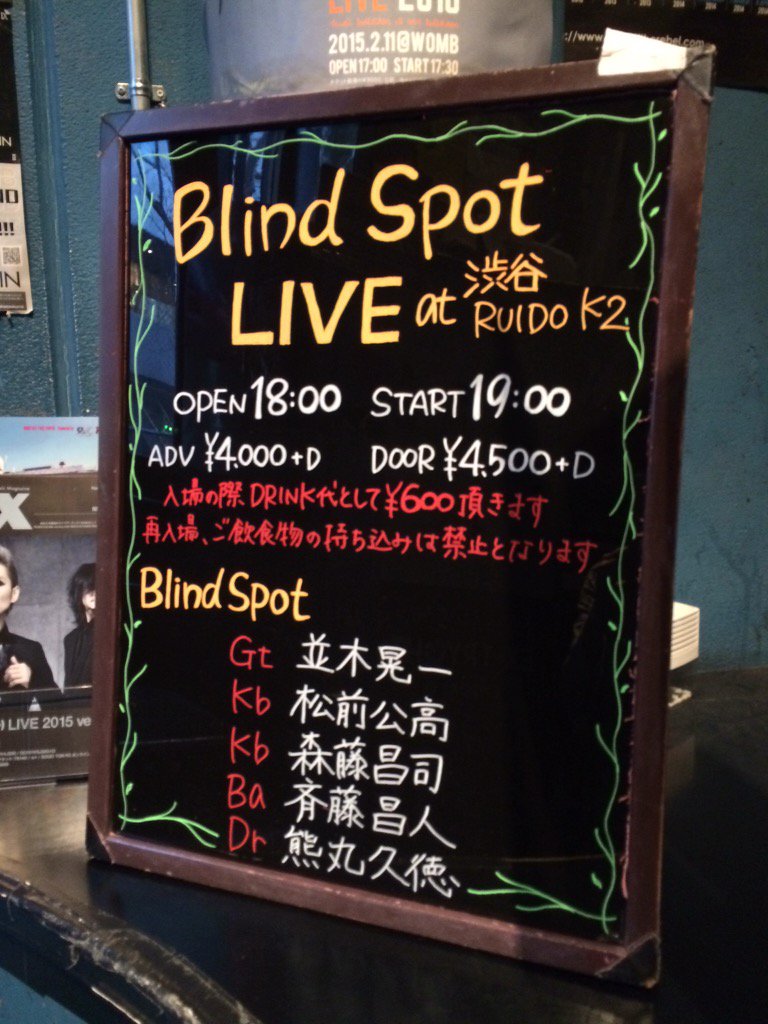 LIVE 2015
2015.2.11@WOMB
OPEN 17:00 START 17:30
Blind Spot
LIVE at 渋谷 RUIDO K2
OPEN 18:00 START 19:00
ADV ¥4.000+D DOOR ¥4.500+D
入場の際 DRINK代として¥600頂きます
再入場、ご飲食物の持ち込みは禁止となります
Blind Spot
Gt 並木晃一
Kb 松前公高
Kb 森藤昌司
Ba 斉藤昌人
Dr 熊丸久徳
X
LIVE 2015 ve
IN
!!!
IN